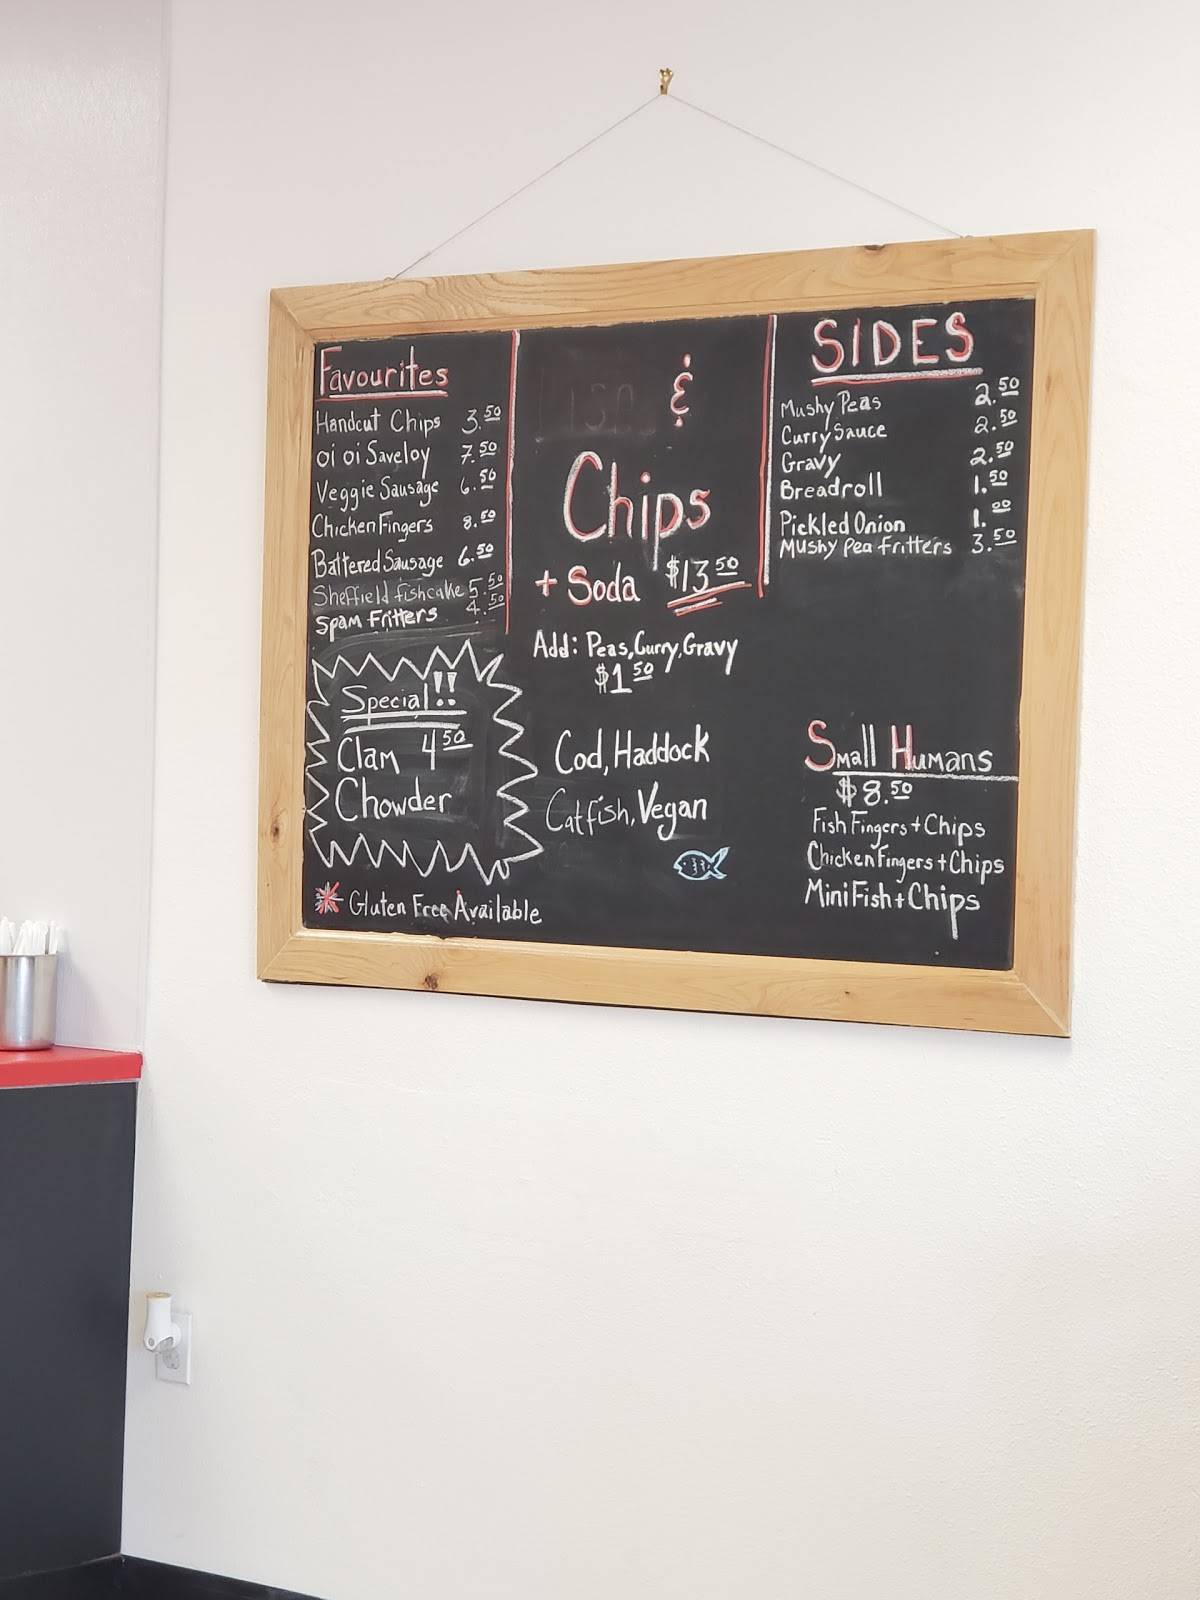 Favourites
Handcut Chips 3.50
oi oi Saveloy 7.50
Veggie Sausage 6.50
Chicken Fingers 8.50
Battered Sausage 6.50
Sheffield fishcake 5.50
Spam Fritters 4.50
Special!!
Clam 4.50
Chowder
Gluten Free Available
&
Chips
+ Soda $13.50
Add: Peas, Curry, Gravy
$1.50
Cod, Haddock
Catfish, Vegan
SIDES
Mushy Peas 2.50
Curry Sauce 2.50
Gravy 2.50
Breadroll 1.50
Pickled Onion 1.00
Mushy Pea Fritters 3.50
Small Humans
$8.50
Fish Fingers + Chips
Chicken Fingers + Chips
Mini Fish + Chips